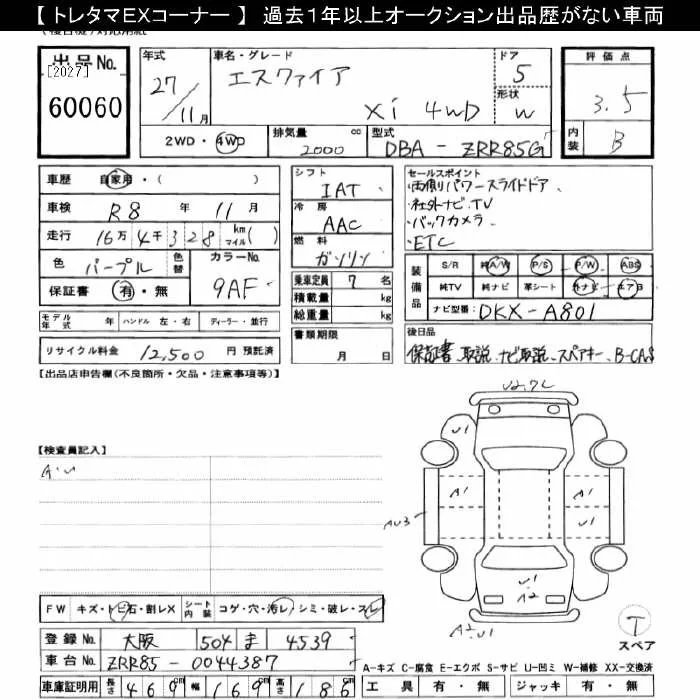 【 トレタマEXコーナー 】 過去1年以上オークション出品歴がない車両
出品No. [2027] 60060
年式 27/11月
車名・グレード エスクァイア Xi 4WD
ドア 5
形状 W
評価点 3.5
内装 B
2WD・4WD
排気量 2000 cc
型式 DBA - ZRR85G
車歴 自家用・( )
車検 R8 年 11 月
走行 16万 4千 3 2 8 km マイル( )
色 パープル 色替
カラーNo. 9AF
保証書 有・無
シフト IAT
冷房 AAC
燃料 ガソリン
乗車定員 7 名
積載量 kg
総重量 kg
セールスポイント
・両側パワースライドドア
・社外ナビ、TV
・バックカメラ
・ETC
装備品 S/R 純A/W P/S P/W ABS
純TV 純ナビ 革シート 外ナビ エアB
ナビ型番: DKX-A801
モデル年式 年 ハンドル 左・右 ディーラー・並行
リサイクル料金 12,500 円 預託済
書類期限 月 日
後日品
保証書、取説、ナビ取説、スペアキー、B-CAS
【出品店申告欄(不良箇所・欠品・注意事項等)】
【検査員記入】
A・U
U2.7L
U1
A1
A1
U1
AU3
U1
A2
A2.U1
FW キズ・トビ石・割レX シート内装 コゲ・穴・汚レ・シミ・破レ・スレ
T
スペア
登録No. 大阪 504 ま 4539
車台No. ZRR85-0044387
A-キズ C-腐食 E-エクボ S-サビ U-凹ミ W-補修 XX-交換済
車庫証明用 長さ 469cm 幅 169cm 高さ 186cm
工具 有・無 ジャッキ 有・無